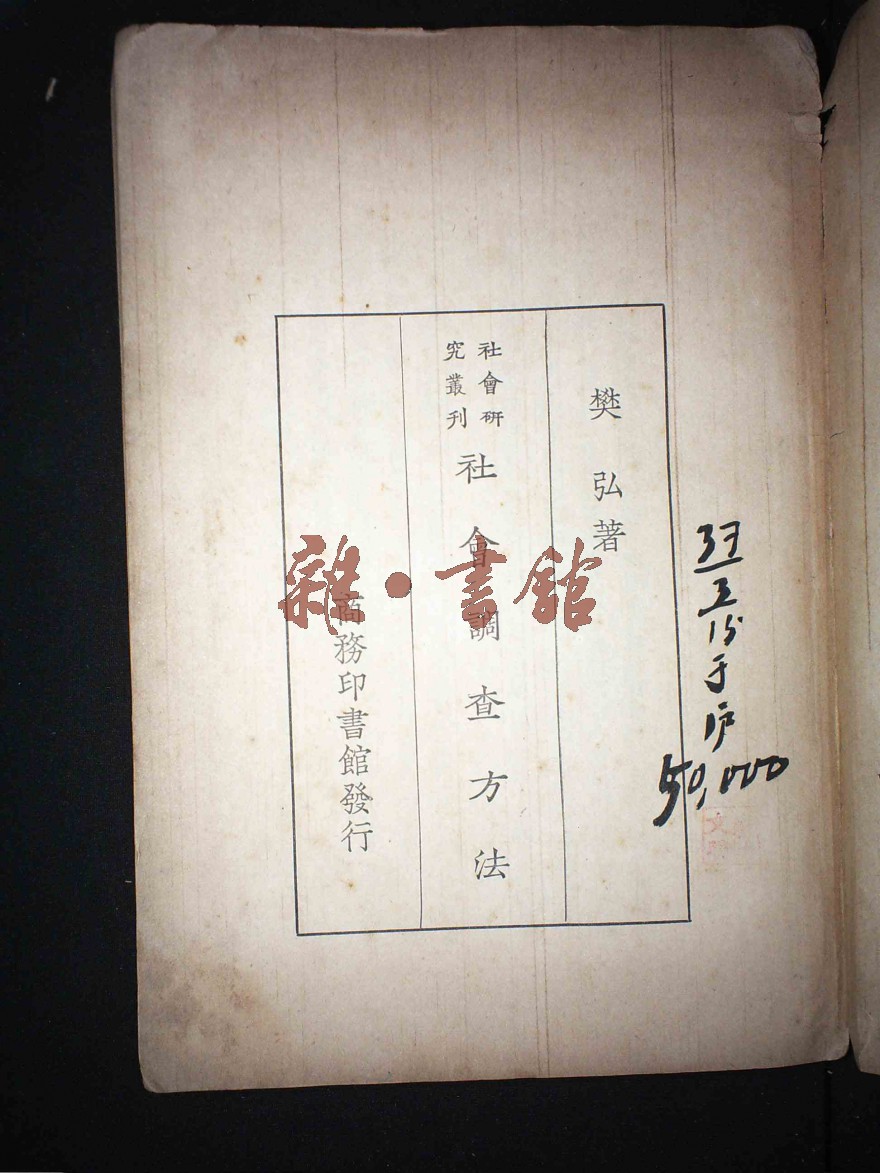 樊弘著
社會研
究叢刊
社會調查方法
商務印書館發行
雜·書館
15
于
沪
50,000